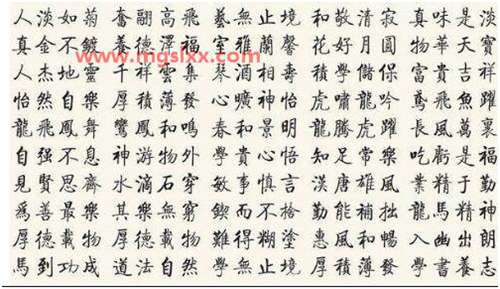 人淡如菊 奮翮高飛 藝無止境 和敬清寂 真味是淡
真金不鍍 養德澤福 室雅蘭馨 花好月圓 物華天寶
www.mgslxx.com
人杰地靈 千祥雲集 琴酒相壽 積學儲保 富貴吉祥
怡然自樂 厚積薄發 心曠神怡 虎嘯龍吟 鳶飛魚躍
龍飛鳳舞 鸞鳳和鳴 春和景明 龍騰虎躍 長風萬裏
自强不息 神游物外 學貴心悟 知足常樂 吃虧是福
見賢思齊 水滴石穿 敏事慎言 漢唐雄風 業精于勤
爲善最樂 其樂無窮 鍥而不捨 勤能補拙 龍馬精神
厚德載物 厚德載物 難得糊塗 惠風和暢 入幽出朗
馬到功成 道法自然 學無止境 厚積薄發 學書養志